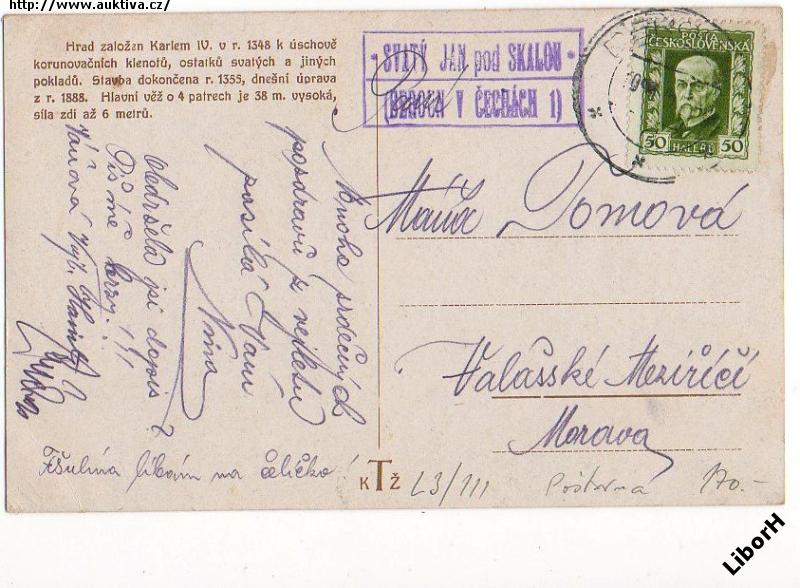 http://www.auktiva.cz/
Hrad založen Karlem IV. v r. 1348 k úschově
korunovačních klenotů, ostatků svatých a jiných
pokladů. Stavba dokončena r. 1355, dnešní úprava
z r. 1888. Hlavní věž o 4 patrech je 38 m. vysoká,
síla zdi až 6 metrů.
SVATÝ JAN pod SKALOU
(BEROUN V ČECHÁCH 1)
POŠTA
ČESKOSLOVENSKÁ
50 HALÉŘŮ 50
Paní
Máňa Tomová
Valašské Meziříčí
Morava
Mnoho srdečných
pozdravů z vejletu
posílá Vám
Nina
Obdržela jsi dopis?
Piš mě brzy!
líbám na čelíčko!
K T Ž
L3/111
Poštovna
170.-
LiborH